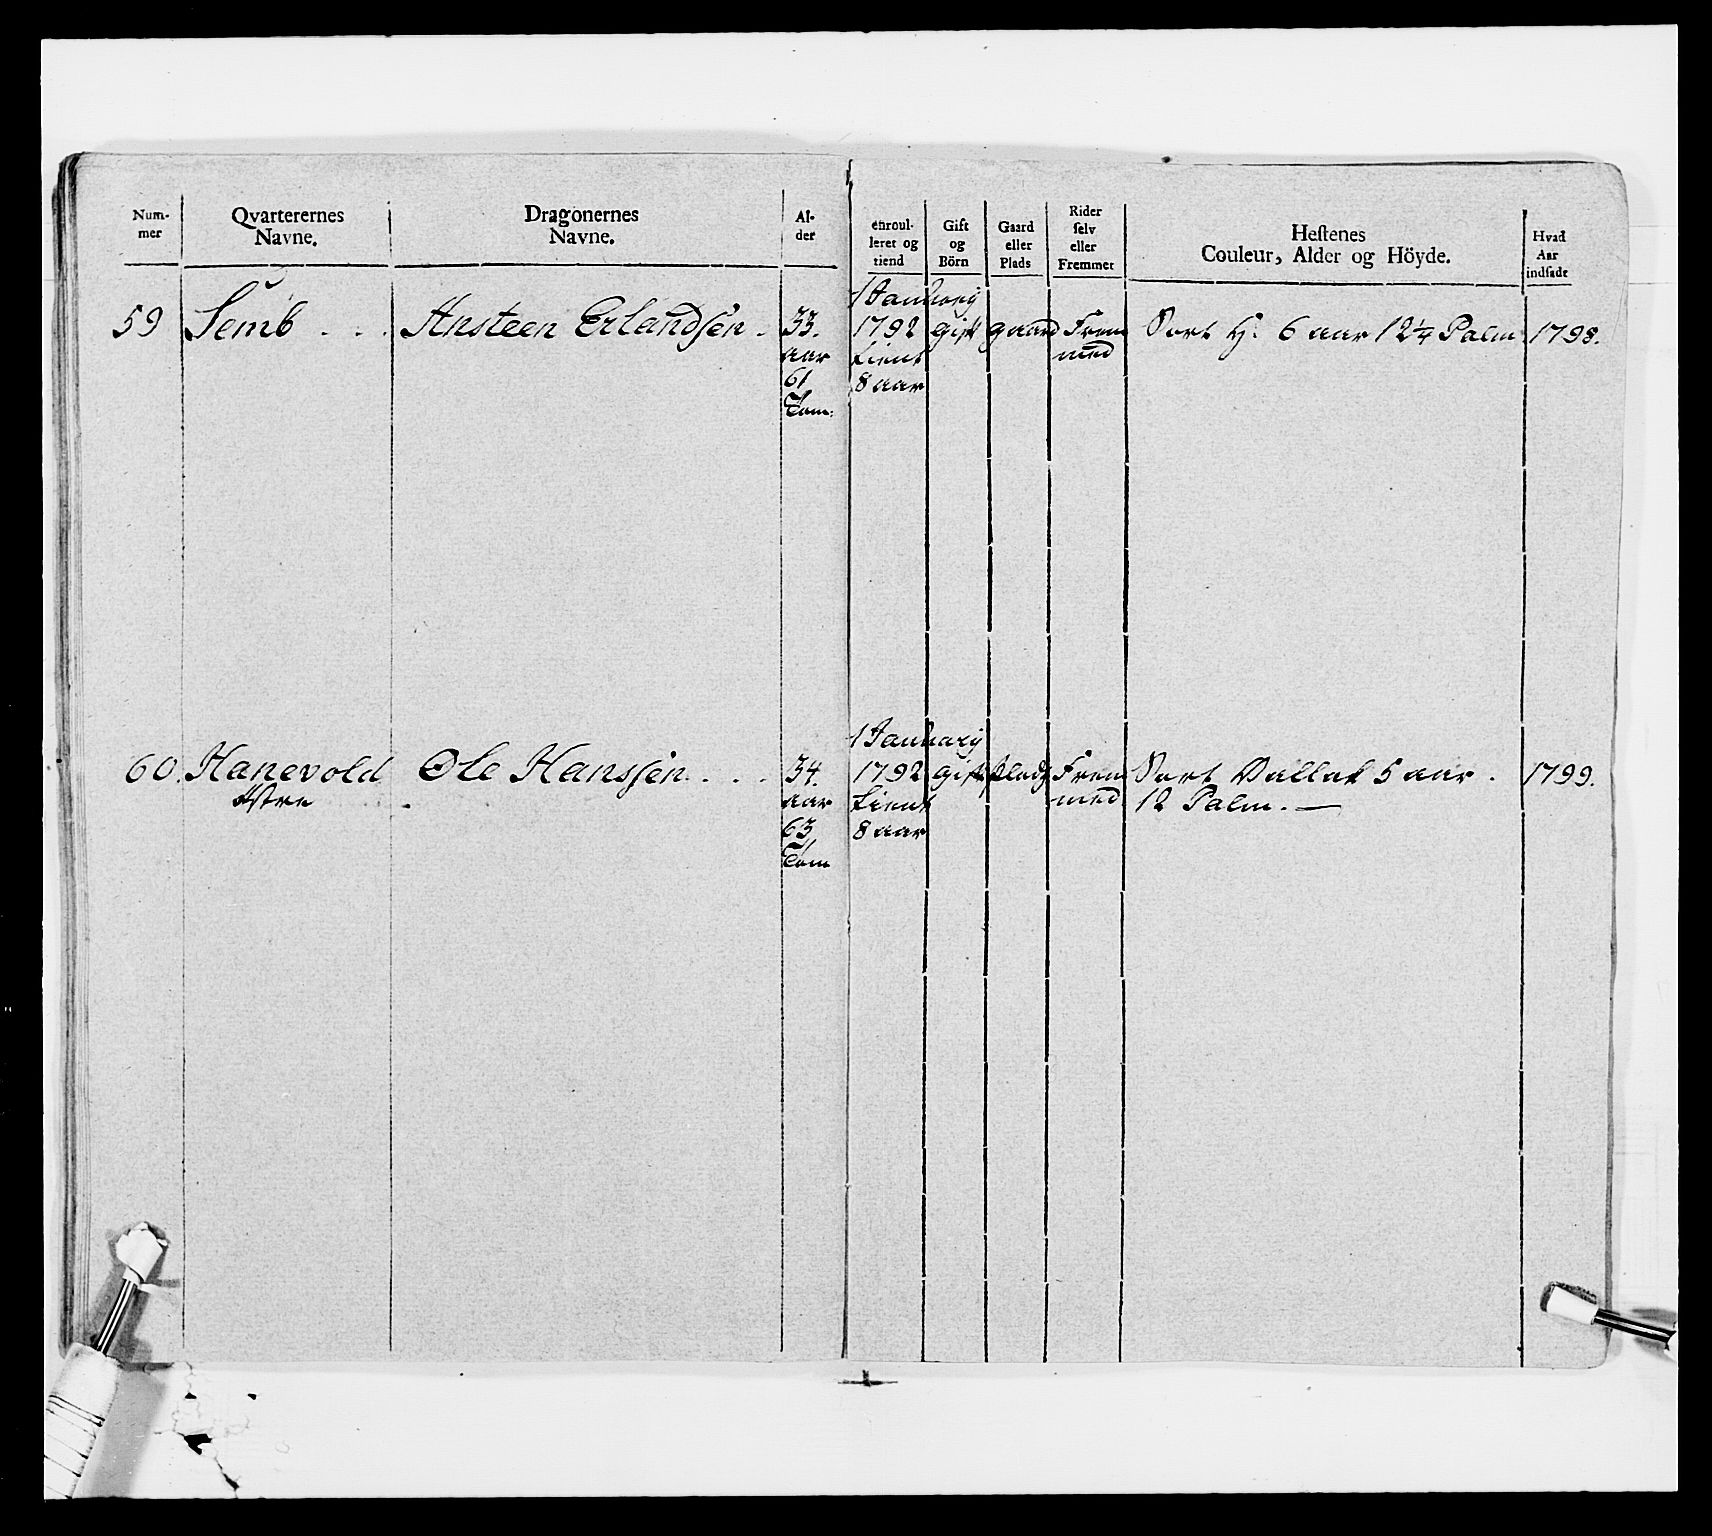 Num-
mer
Qvarterernes
Navne.
Dragonernes
Navne.
Al-
der
enroul-
leret og
tiend
Gift
og
Börn
Gaard
eller
Plads
Rider
selv
eller
Fremmet
Hestenes
Couleur, Alder og Höyde.
Hvad
Aar
indsadt
59 Semb . . . Ansteen Erlandsen . 33. 1 Januarij
aar 1792 gift gaard Frem Sort H. 6 aar 12 1/4 Palm 1798.
61 tient med
Tom: 8 aar
60. Hanevold Ole Hanssen . . . 34. 1 Januarij
Østre aar 1792 gift plads Frem Sort Vallak 5 aar . 1799.
63 tient med 12 Palm. —
Tom 8 aar